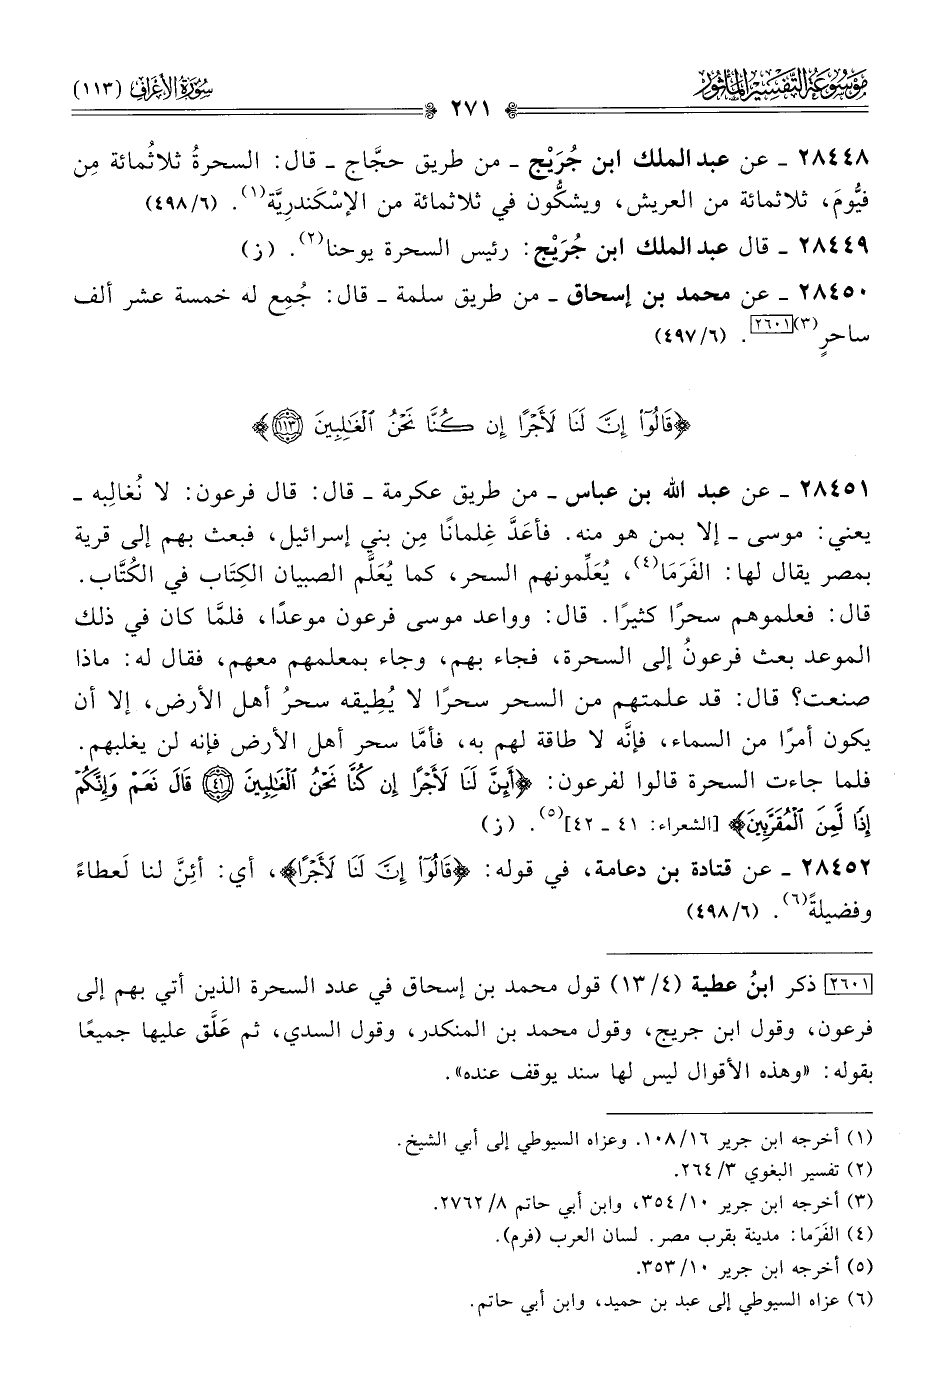 مَوْسُوعَةُ التَّفْسِيرِ المَأْثُور
سُورَةُ الأَعْرَاف (١١٣)
٢٧١
٢٨٤٤٨ ـ عن عبد الملك ابن جُرَيْج ـ من طريق حجَّاج ـ قال: السحرةُ ثلاثُمائة مِن
فيُّومَ، ثلاثمائة من العريش، ويشكُّون في ثلاثمائة من الإسْكَندرِيَّة(١). (٦/ ٤٩٨)
٢٨٤٤٩ ـ قال عبد الملك ابن جُرَيْج: رئيس السحرة يوحنا(٢). (ز)
٢٨٤٥٠ ـ عن محمد بن إسحاق ـ من طريق سلمة ـ قال: جُمِع له خمسة عشر ألف
ساحرٍ(٣)[٢٦٠١]. (٦/ ٤٩٧)
﴿قَالُوٓا۟ إِنَّ لَنَا لَأَجْرًا إِن كُنَّا نَحْنُ ٱلْغَٰلِبِينَ ١١٣﴾
٢٨٤٥١ ـ عن عبد الله بن عباس ـ من طريق عكرمة ـ قال: قال فرعون: لا نُغالِبه ـ
يعني: موسى ـ إلا بمن هو منه. فأعَدَّ غِلمانًا مِن بني إسرائيل، فبعث بهم إلى قرية
بمصر يقال لها: الفَرَمَا(٤)، يُعَلِّمونهم السحر، كما يُعَلَّم الصبيان الكِتَاب في الكُتَّاب.
قال: فعلموهم سحرًا كثيرًا. قال: وواعد موسى فرعون موعدًا، فلمَّا كان في ذلك
الموعد بعث فرعونُ إلى السحرة، فجاء بهم، وجاء بمعلمهم معهم، فقال له: ماذا
صنعت؟ قال: قد علمتهم من السحر سحرًا لا يُطِيقه سحرُ أهل الأرض، إلا أن
يكون أمرًا من السماء، فإنَّه لا طاقة لهم به، فأمَّا سحر أهل الأرض فإنه لن يغلبهم.
فلما جاءت السحرة قالوا لفرعون: ﴿أَئِنَّ لَنَا لَأَجْرًا إِن كُنَّا نَحْنُ ٱلْغَٰلِبِينَ ٤١ قَالَ نَعَمْ وَإِنَّكُمْ
إِذًا لَّمِنَ ٱلْمُقَرَّبِينَ﴾ [الشعراء: ٤١ ـ ٤٢](٥). (ز)
٢٨٤٥٢ ـ عن قتادة بن دعامة، في قوله: ﴿قَالُوٓا۟ إِنَّ لَنَا لَأَجْرًا﴾، أي: أئِنَّ لنا لَعطاءً
وفضيلةً(٦). (٦/ ٤٩٨)
[٢٦٠١] ذكر ابنُ عطية (٤/ ١٣) قول محمد بن إسحاق في عدد السحرة الذين أتي بهم إلى
فرعون، وقول ابن جريج، وقول محمد بن المنكدر، وقول السدي، ثم عَلَّق عليها جميعًا
بقوله: «وهذه الأقوال ليس لها سند يوقف عنده».
(١) أخرجه ابن جرير ١٦/ ١٠٨. وعزاه السيوطي إلى أبي الشيخ.
(٢) تفسير البغوي ٣/ ٢٦٤.
(٣) أخرجه ابن جرير ١٠/ ٣٥٤، وابن أبي حاتم ٨/ ٢٧٦٢.
(٤) الفَرَما: مدينة بقرب مصر. لسان العرب (فرم).
(٥) أخرجه ابن جرير ١٠/ ٣٥٣.
(٦) عزاه السيوطي إلى عبد بن حميد، وابن أبي حاتم.